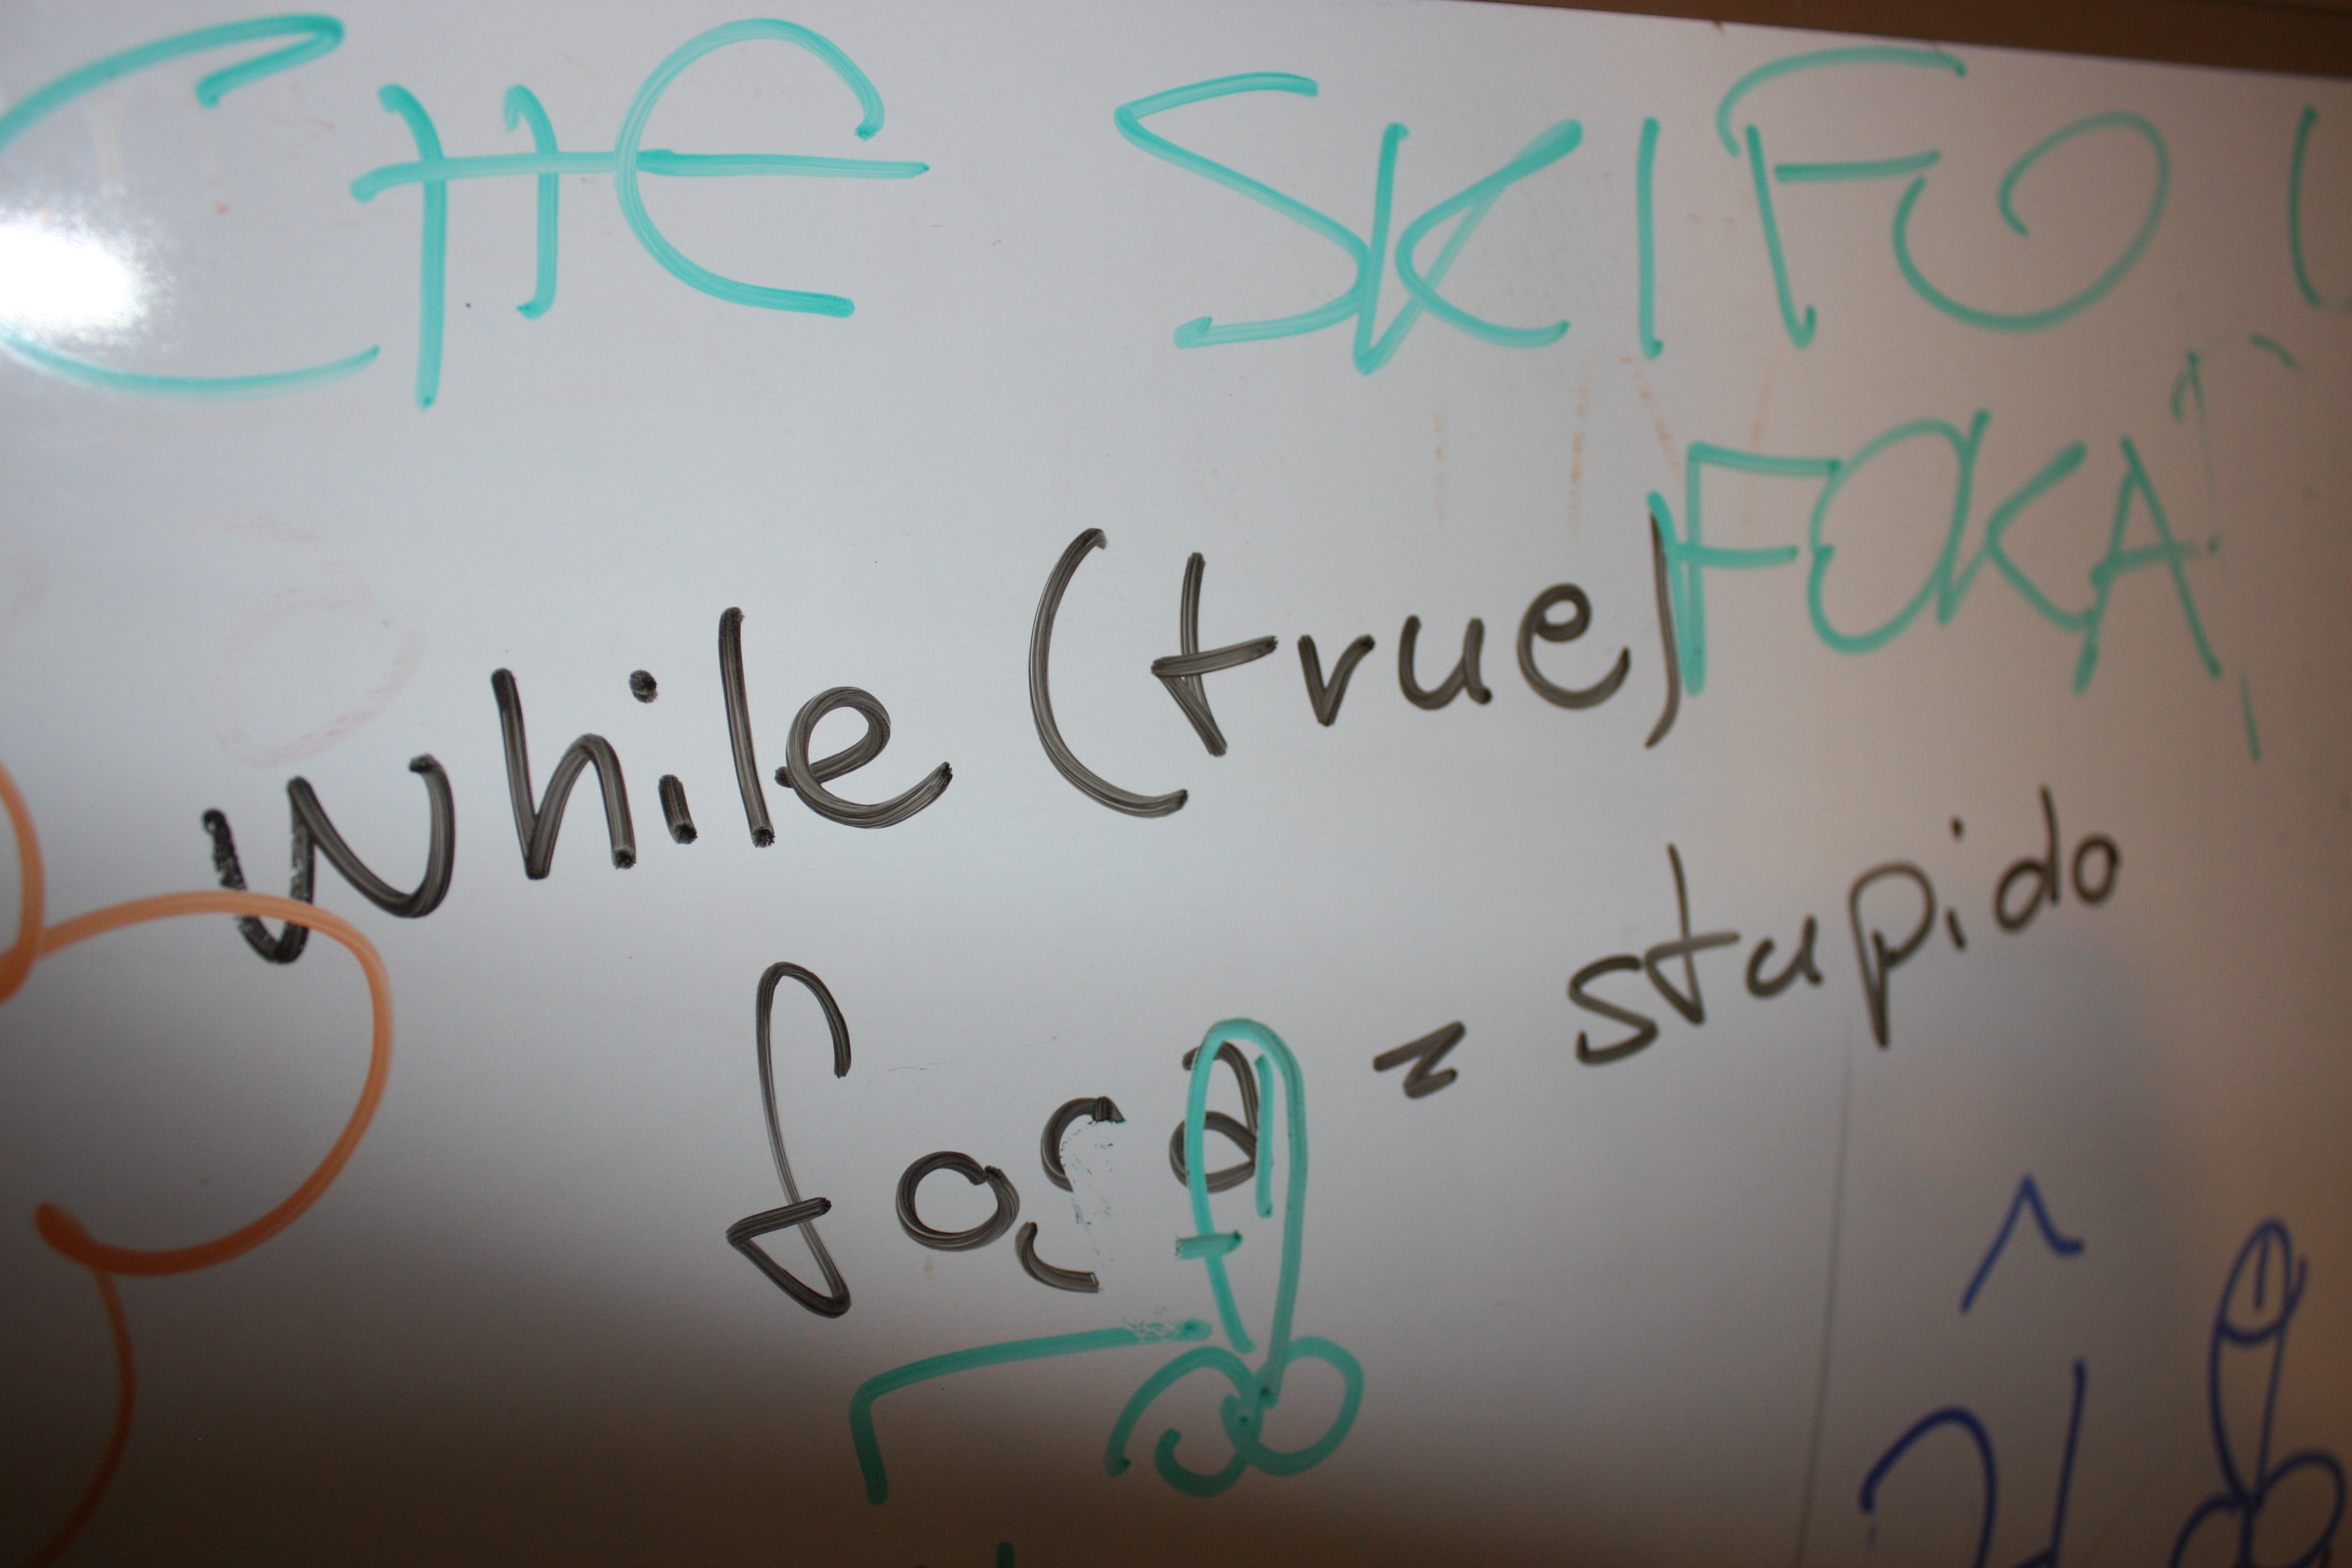 CHE SKIFO
FOKA
while (true)
foca = stupido